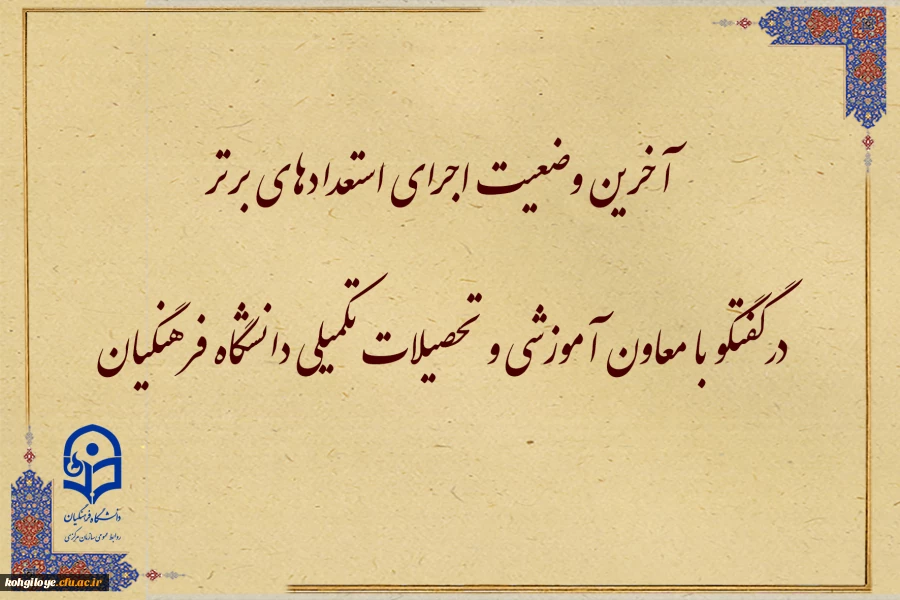 آخرین وضعیت اجرای استعدادهای برتر
در گفتگو با معاون آموزشی و تحصیلات تکمیلی دانشگاه فرهنگیان
دانشگاه فرهنگیان
روابط عمومی سازمان مرکزی
kohgiloye.cfu.ac.ir